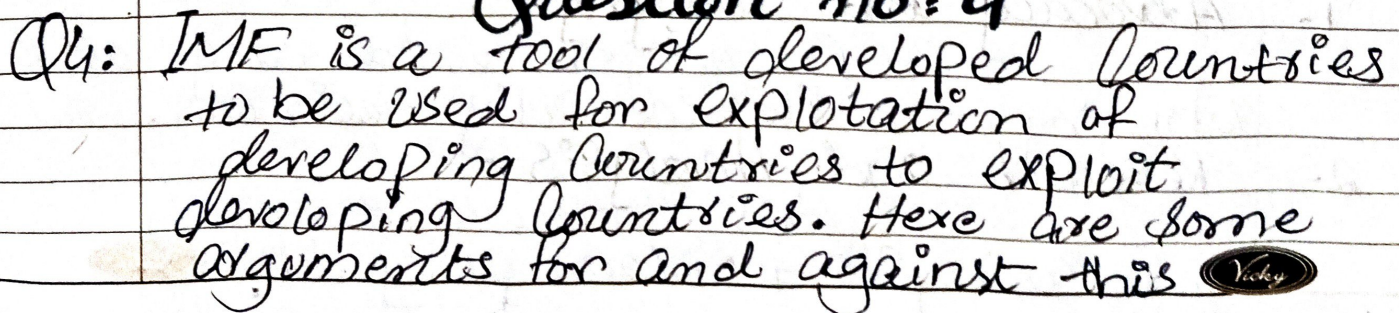 Question no: 4
Q4: IMF is a tool of developed Countries
to be used for explotation of
developing Countries to exploit
developing Countries. Here are some
arguments for and against this
Vicky